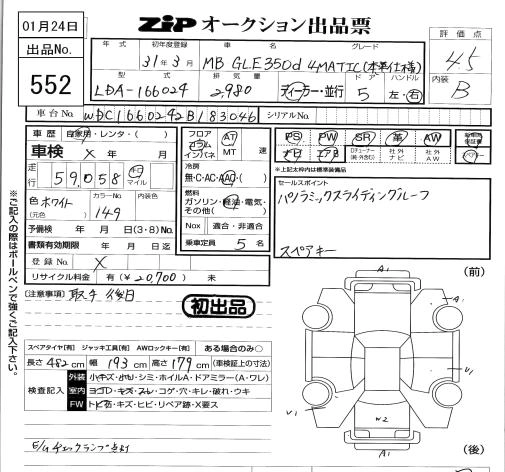 01月24日
ZiP オークション出品票
出品No.
552
年式
初年度登録
車名
グレード
31年3月
MB GLE350d 4MATIC(本革仕様)
型式
排気量
ドア
ハンドル
LDA-166024
2,980
ディーラー・並行
5
左・右
評価点
4.5
内装
B
車台No.
WDC1660242B183046
シリアルNo.
車歴
自家用・レンタ・( )
車検
X 年 月
走行
59,058
キロ
マイル
色
ホワイト
(元色)
カラーNo.
149
内装色
予備検 年 月(3・8)No.
書類有効期限 年 月 日迄
登録No. X
リサイクル料金 有(¥20,700) 未
フロア
コラム
インパネ
AT
MT
速
冷房
無・C・AC・AAC・( )
燃料
ガソリン・軽油・電気・
その他( )
Nox 適合・非適合
乗車定員 5 名
PS PW SR 革 AW
ナビ エアB
社外
ナビ
社外
AW
※上記太枠内は標準装備品
セールスポイント
パノラミックスライディングルーフ
スペアキー
[注意事項] 取扱 後日
初出品
スペアタイヤ[有] ジャッキ工具[有] AWロックキー[有] ある場合のみ○
長さ 482 cm 幅 193 cm 高さ 179 cm (車検証上の寸法)
検査記入
外装 小キズ・小凹・シミ・ホイルA・ドアミラー(A・ワレ)
室内 ヨゴレ・キズ・スレ・コゲ・穴・キレ・破れ・ウキ
FW トビ石・キズ・ヒビ・リペア跡・X要ス
E/gチェックランプ点灯
※ご記入の際はボールペンで強くご記入下さい。
(前)
A1
A1
V1
V1
W2
A1
(後)